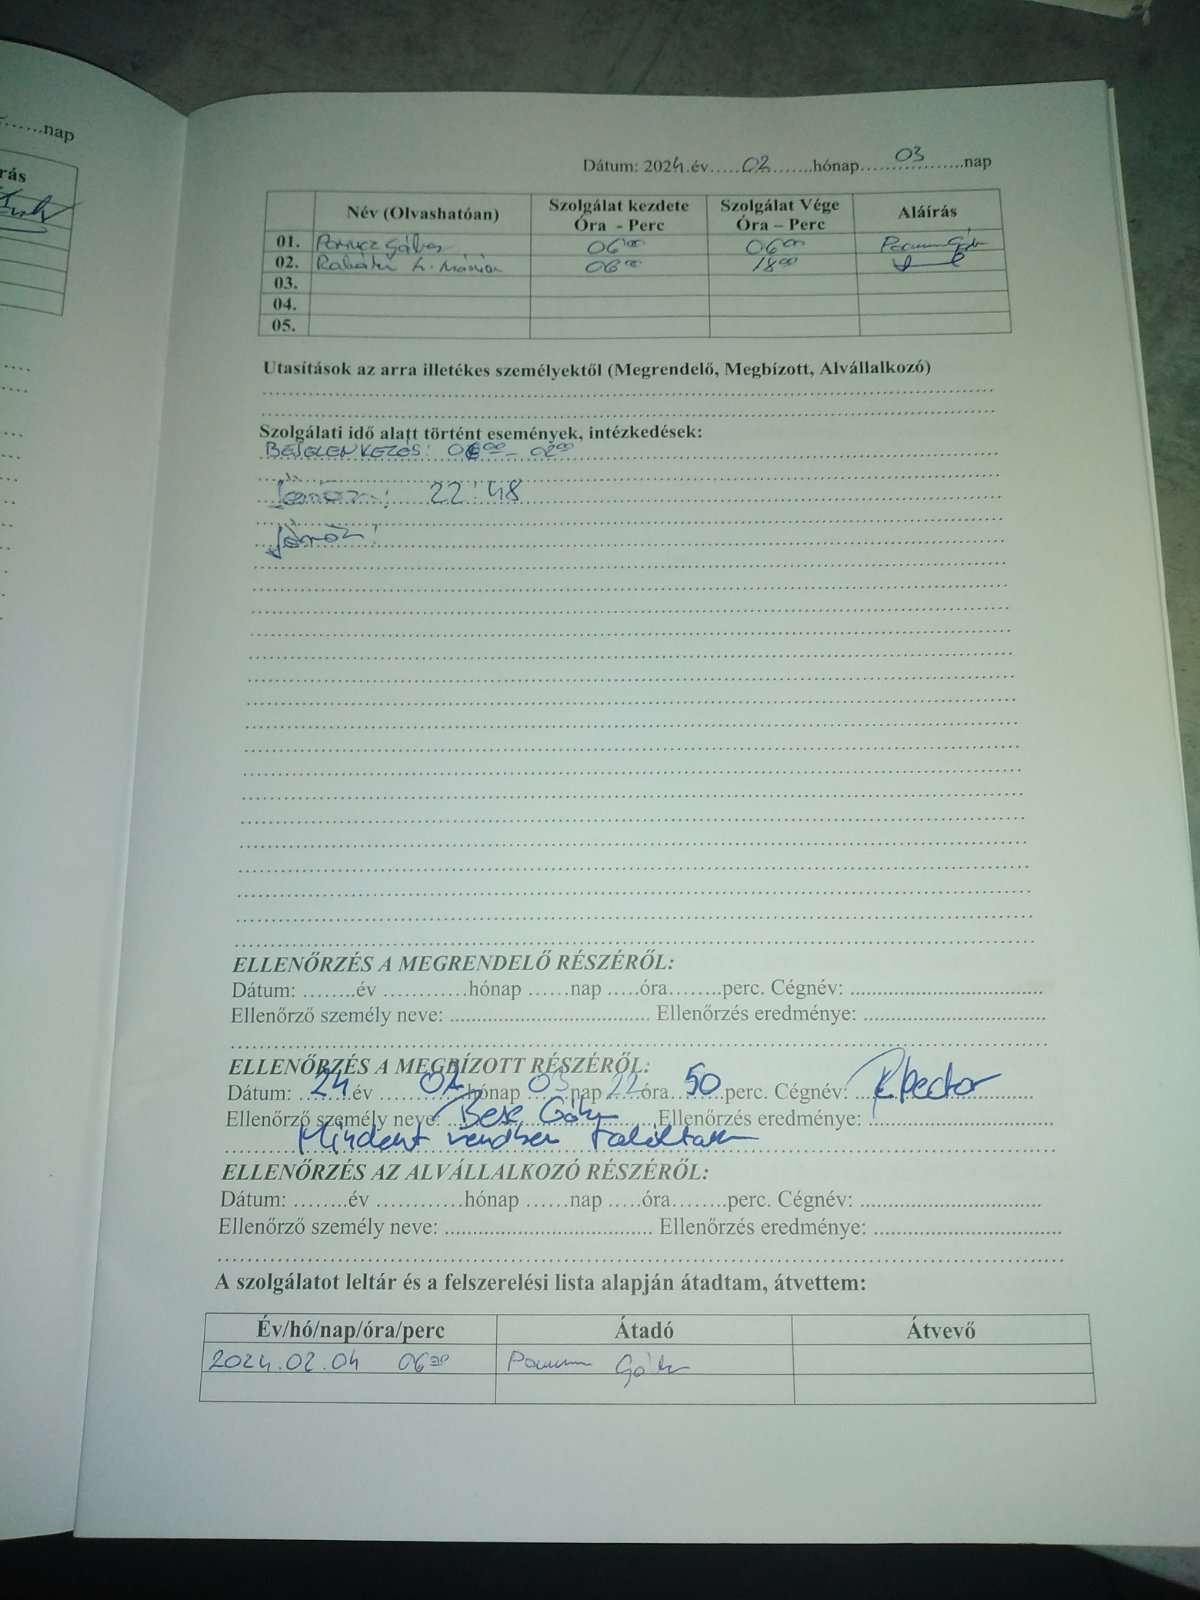 nap
rás
Dátum: 2024.év.....02........hónap......03......nap
Név (Olvashatóan) Szolgálat kezdete Óra - Perc Szolgálat Vége Óra – Perc Aláírás
01. Gábor 06 00 06 00
02. 06 00 18 00
03.
04.
05.
Utasítások az arra illetékes személyektől (Megrendelő, Megbízott, Alvállalkozó)
Szolgálati idő alatt történt események, intézkedések:
BEJELENKEZÉS: 06 00 - 02 00
22:48
Járőr:
ELLENŐRZÉS A MEGRENDELŐ RÉSZÉRŐL:
Dátum: ........év ............hónap ......nap .....óra........perc. Cégnév: ...................................
Ellenőrző személy neve: .................................... Ellenőrzés eredménye: .................................
ELLENŐRZÉS A MEGBÍZOTT RÉSZÉRŐL:
Dátum: 24 év 02 hónap 03 nap 22 óra 50 perc. Cégnév:
Ellenőrző személy neve: Ellenőrzés eredménye: ..............................
Mindent rendben találtam
ELLENŐRZÉS AZ ALVÁLLALKOZÓ RÉSZÉRŐL:
Dátum: ........év ............hónap ......nap .....óra........perc. Cégnév: .................................
Ellenőrző személy neve: ...................................... Ellenőrzés eredménye: ..................................
A szolgálatot leltár és a felszerelési lista alapján átadtam, átvettem:
Év/hó/nap/óra/perc Átadó Átvevő
2024.02.04 06 00 Gábor